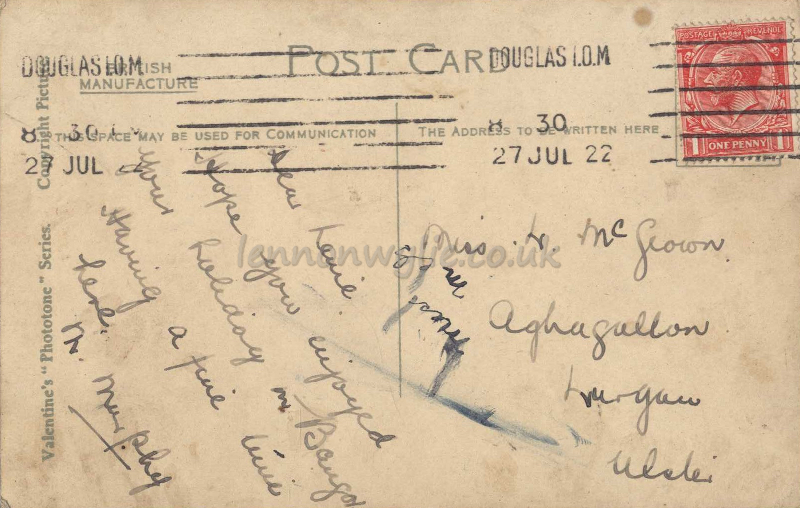 POST CARD
BRITISH
MANUFACTURE
DOUGLAS I.O.M
8 30
27 JUL
DOUGLAS I.O.M
8 30
27 JUL 22
POSTAGE REVENUE
1 ONE PENNY 1
THIS SPACE MAY BE USED FOR COMMUNICATION
THE ADDRESS TO BE WRITTEN HERE
Valentine's "Phototone" Series. Copyright Picture
Dear
Hope you enjoyed
your holiday in Bangor
Having a fine time
here.
N. Murphy
Miss L. McGeown
Aghagallon
Lurgan
Ulster
lennonwylie.co.uk